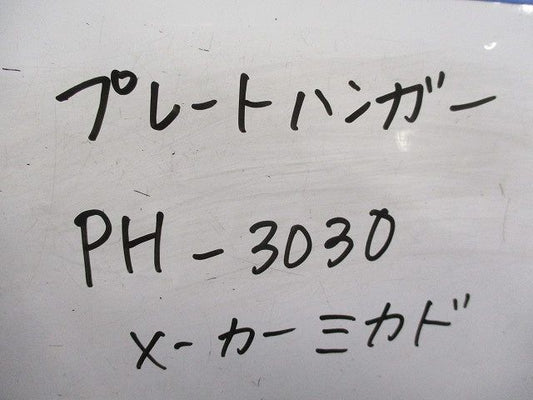 プレートハンガー
PH-3030
メーカーミカド